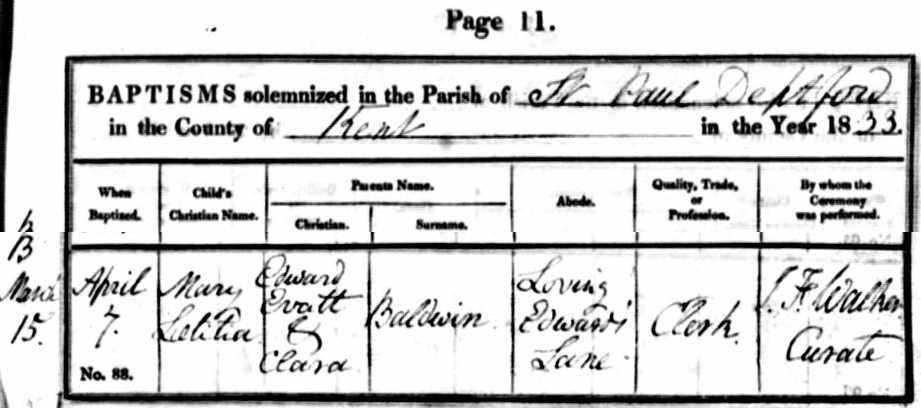 Page 11.
BAPTISMS solemnized in the Parish of St. Paul Deptford
in the County of Kent in the Year 1833.
When Baptized.
Child's Christian Name.
Parents Name.
Christian.
Surname.
Abode.
Quality, Trade, or Profession.
By whom the Ceremony was performed.
B
March
15.
April
7.
No. 88.
Mary
Letitia
Edward
Evatt
&
Clara
Baldwin
Loving
Edward's
Lane
Clerk
J. F. Walker
Curate